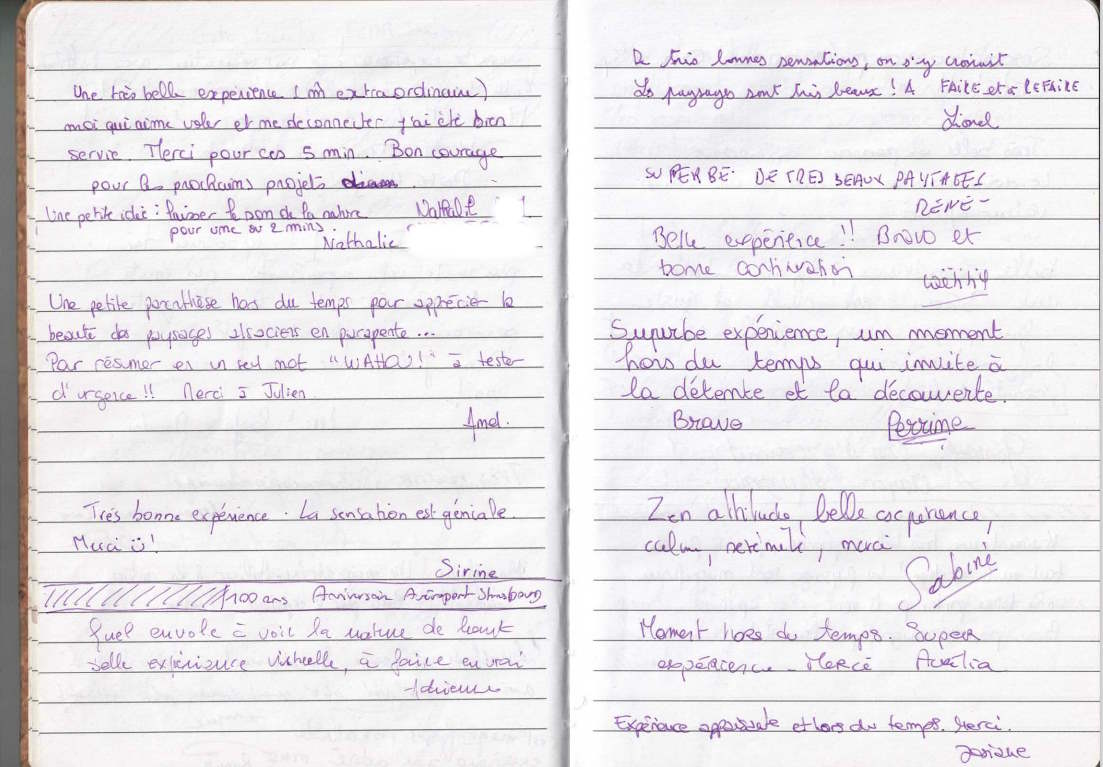 Une très belle expérience (m̂ extraordinaire)
moi qui aime voler et me deconnecter j'ai été bien
servie. Merci pour ces 5 min. Bon courage
pour les prochains projets
Une petite idée : laisser le son de la nature Nathalie
pour une ou 2 mins.
Nathalie
Une petite parenthèse hors du temps pour apprécier la
beauté des paysages alsaciens en parapente...
Pour résumer en un seul mot "WAHOU!" à tester
d'urgence !! Merci à Julien
Amel.
Très bonne expérience. La sensation est géniale.
Merci ü!
Sirine
100 ans Anniversaire Aéroport Strasbourg
Quel envole à voir la nature de haut
belle expérience virtuelle, à faire en vrai
Adrienne
De très bonnes sensations, on s'y croirait
Les paysages sont très beaux ! A FAIRE et à REFAIRE
Lionel
SUPERBE. DE TRES BEAUX PAYSAGES
RENE
Belle expérience !! Bravo et
bonne continuation
Laëtitia
Superbe expérience, un moment
hors du temps qui invite à
la détente et la découverte.
Bravo Perrine
Zen attitude, belle expérience,
calme, sérénité, merci
Sabine
Moment hors du temps. Super
expérience. Merci Aurélia
Expérience apaisante et hors du temps. Merci.
Josiane